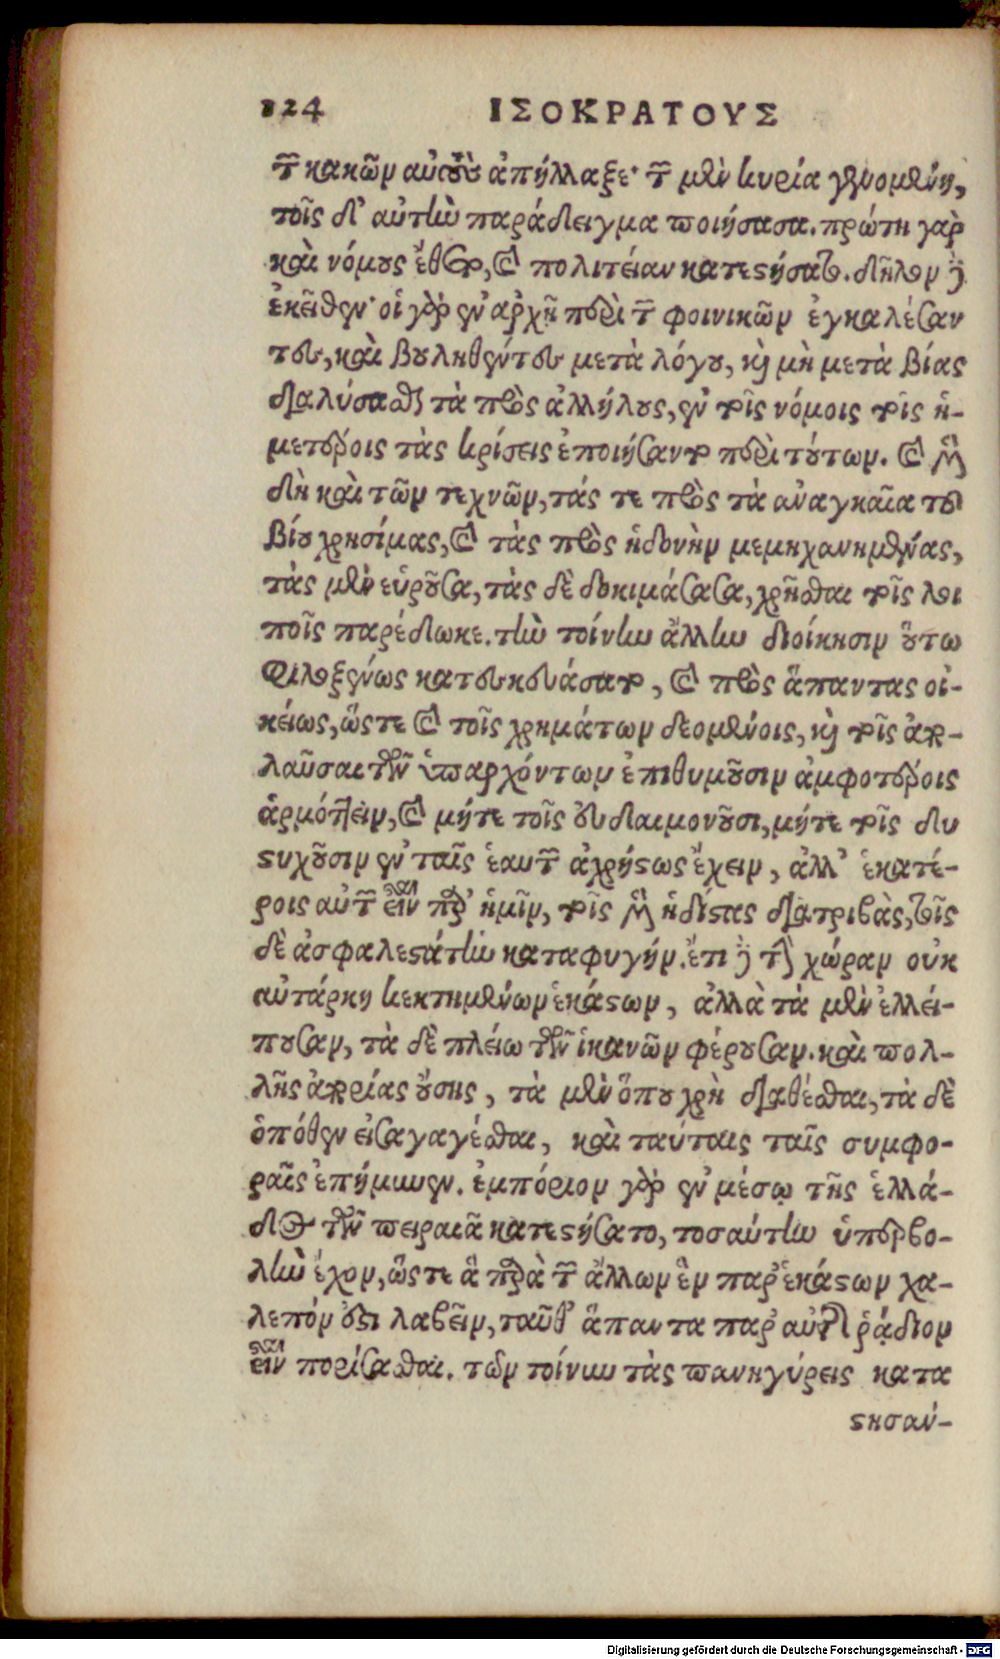 124 ΙΣΟΚΡΑΤΟΥΣ
τῶν κακῶν αὐτοὺς ἀπήλλαξε· τῶν μὲν κυρία γενομένη,
τοῖς δ' αὑτὴν παράδειγμα ποιήσασα. πρώτη γὰρ
καὶ νόμους ἔθετο, καὶ πολιτείαν κατεστήσατο. δῆλον δὲ
ἐκεῖθεν· οἱ γὰρ ἐν ἀρχῇ περὶ τῶν φοινικῶν ἐγκαλέσαν
τες, καὶ βουληθέντες μετὰ λόγου, καὶ μὴ μετὰ βίας
διαλύσασθαι τὰ πρὸς ἀλλήλους, ἐν τοῖς νόμοις τοῖς ἡ-
μετέροις τὰς κρίσεις ἐποιήσαντο περὶ τούτων. καὶ μὲν
δὴ καὶ τῶν τεχνῶν, τάς τε πρὸς τὰ ἀναγκαῖα τοῦ
βίου χρησίμας, καὶ τὰς πρὸς ἡδονὴν μεμηχανημένας,
τὰς μὲν εὑροῦσα, τὰς δὲ δοκιμάσασα, χρῆσθαι τοῖς λοι
ποῖς παρέδωκε. τὴν τοίνυν ἄλλην διοίκησιν οὕτω
φιλοξένως κατεσκευάσατο, καὶ πρὸς ἅπαντας οἰ-
κείως, ὥστε καὶ τοῖς χρημάτων δεομένοις, καὶ τοῖς ἀπο-
λαῦσαι τῶν ὑπαρχόντων ἐπιθυμοῦσιν ἀμφοτέροις
ἁρμόττειν, καὶ μήτε τοῖς εὐδαιμονοῦσι, μήτε τοῖς δυ
στυχοῦσιν ἐν ταῖς ἑαυτῶν ἀχρήστως ἔχειν, ἀλλ' ἑκατέ-
ροις αὐτῶν εἶναι παρ' ἡμῖν, τοῖς μὲν ἡδίστας διατριβὰς, τοῖς
δὲ ἀσφαλεστάτην καταφυγήν. ἔτι δὲ τὴν χώραν οὐκ
αὐτάρκη κεκτημένων ἑκάστων, ἀλλὰ τὰ μὲν ἐλλεί-
πουσαν, τὰ δὲ πλείω τῶν ἱκανῶν φέρουσαν. καὶ πολ-
λῆς ἀπορίας οὔσης, τὰ μὲν ὅπου χρὴ διαθέσθαι, τὰ δὲ
ὁπόθεν εἰσαγαγέσθαι, καὶ ταύταις ταῖς συμφο-
ραῖς ἐπήμυνεν. ἐμπόριον γὰρ ἐν μέσῳ τῆς ἑλλά-
δος τὸν πειραιᾶ κατεστήσατο, τοσαύτην ὑπερβο-
λὴν ἔχον, ὥστε ἃ παρὰ τῶν ἄλλων ἓν παρ' ἑκάστων χα-
λεπόν ἐστι λαβεῖν, ταῦθ' ἅπαντα παρ' αὐτῆς ῥᾴδιον
εἶναι πορίσασθαι. τῶν τοίνυν τὰς πανηγύρεις κατα
στησάν-
Digitalisierung gefördert durch die Deutsche Forschungsgemeinschaft - DFG